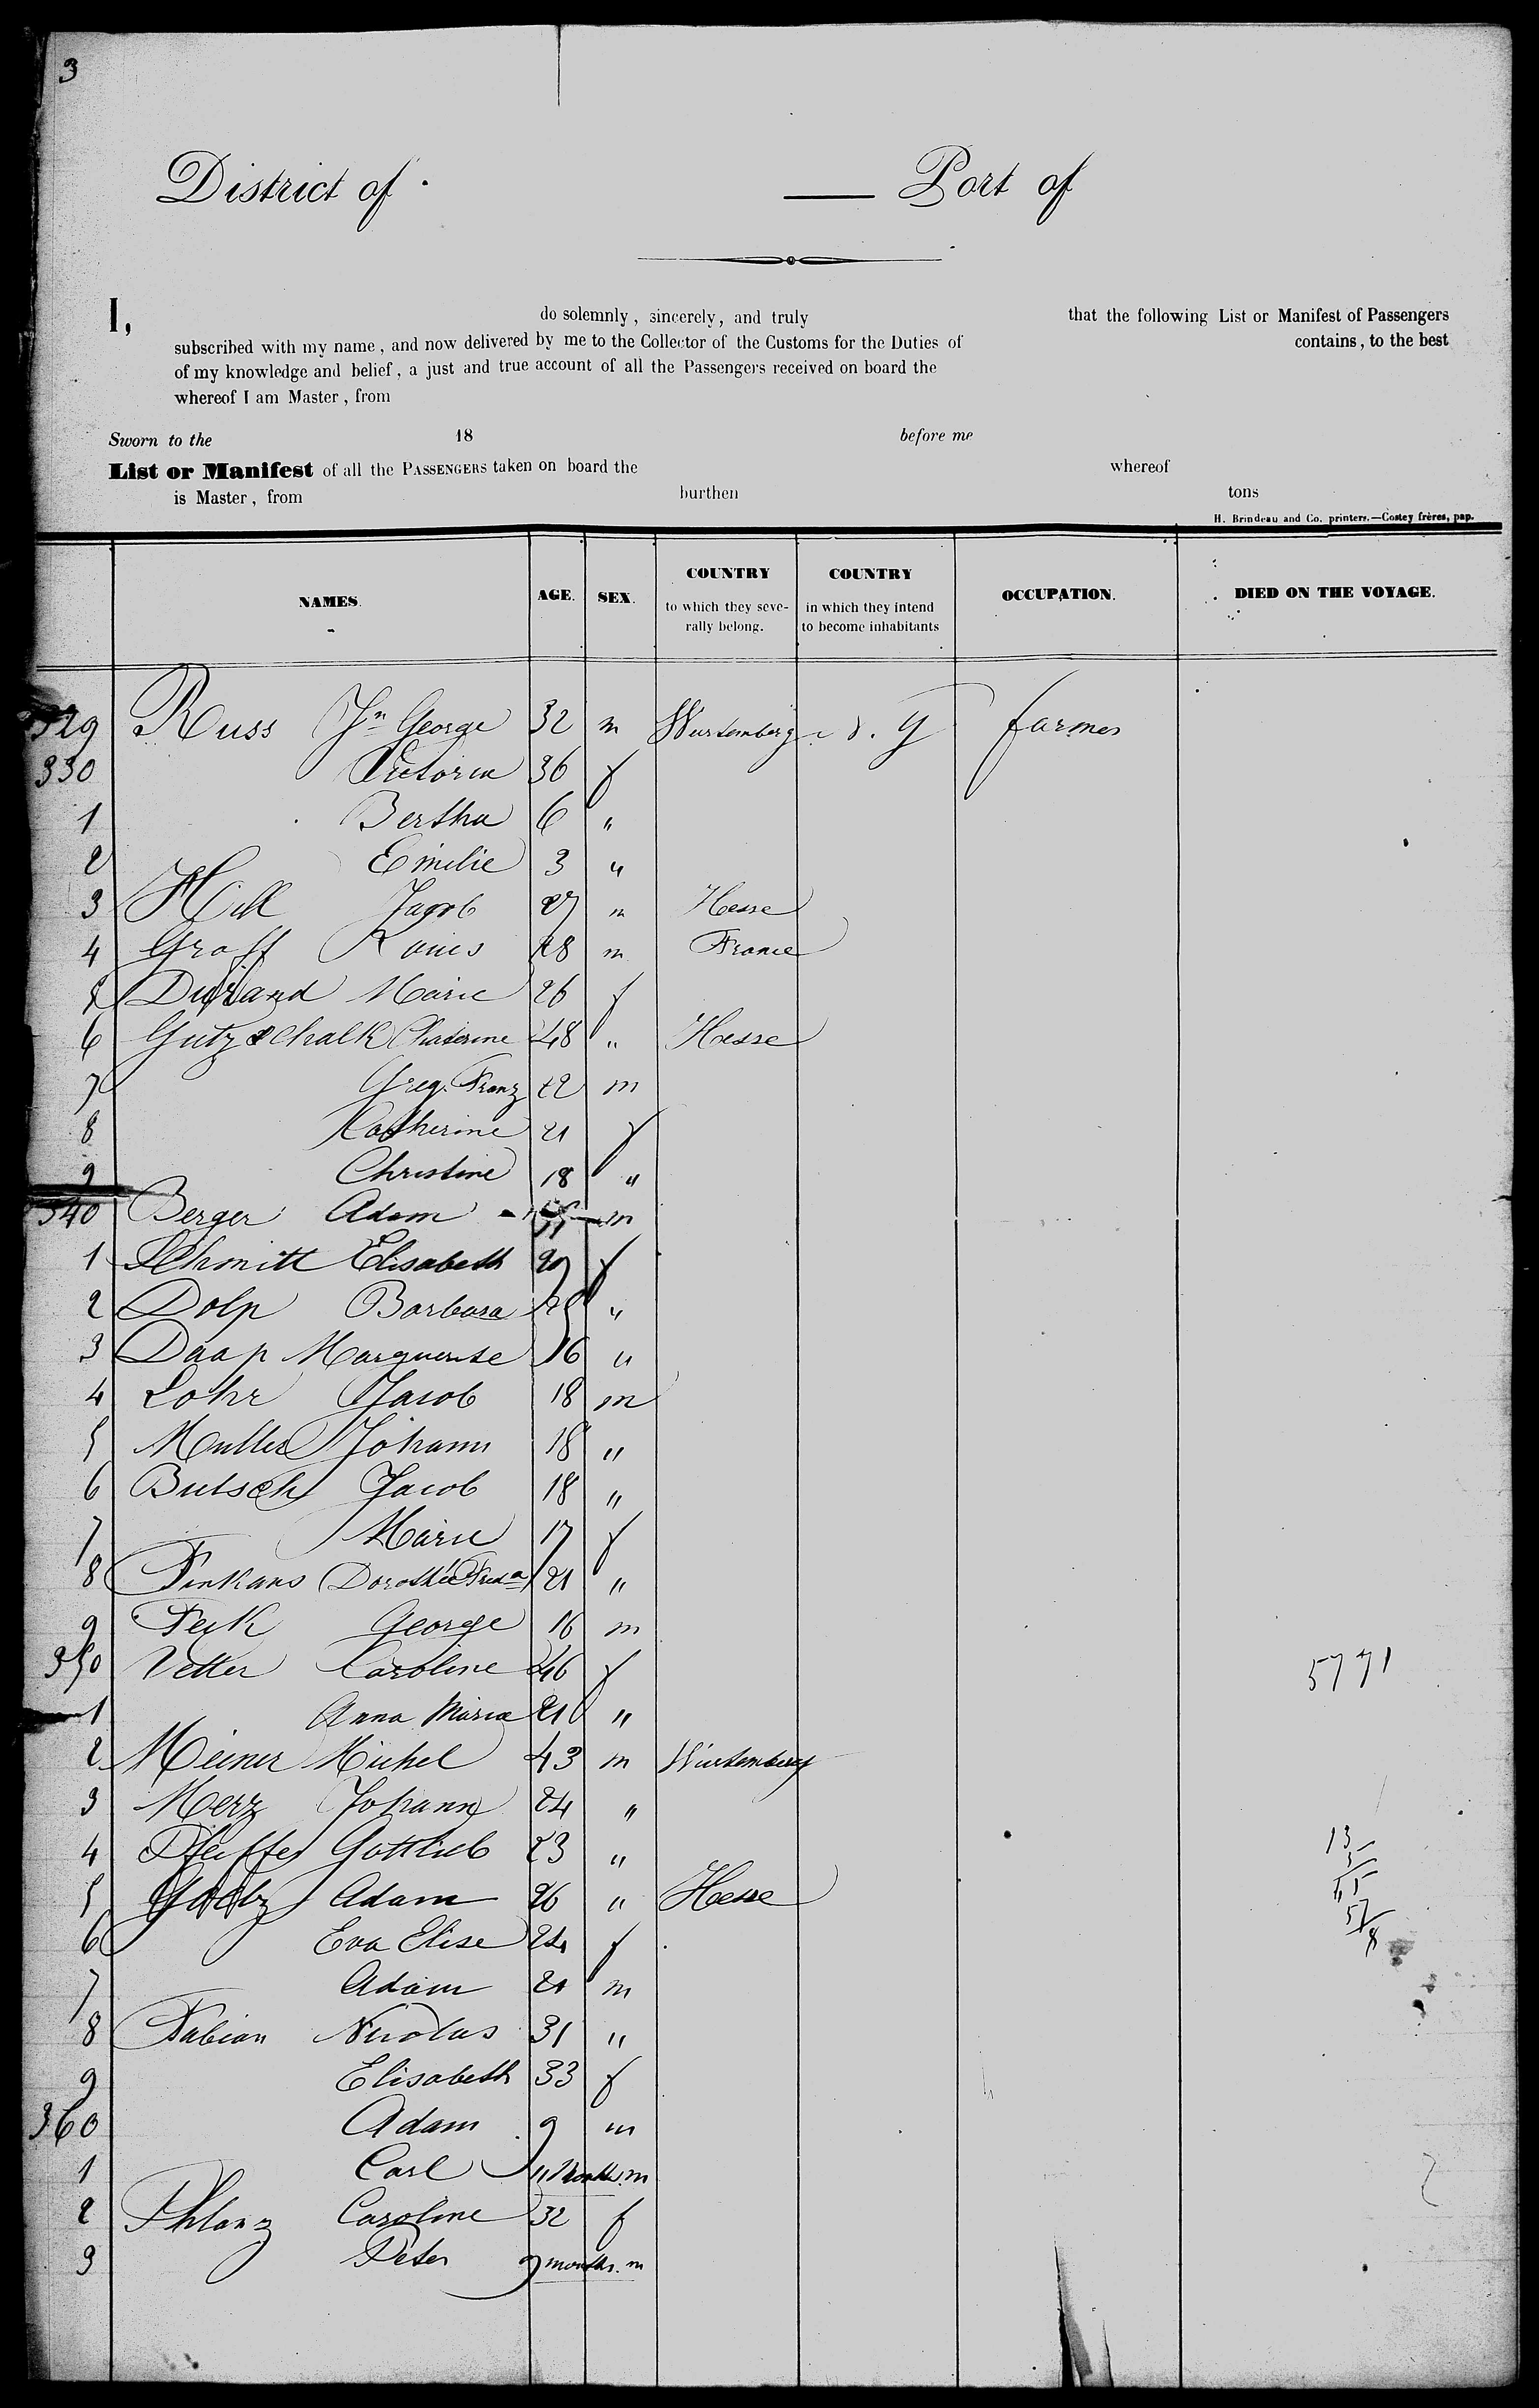 3
District of — Port of
I, do solemnly, sincerely, and truly that the following List or Manifest of Passengers
subscribed with my name, and now delivered by me to the Collector of the Customs for the Duties of contains, to the best
of my knowledge and belief, a just and true account of all the Passengers received on board the
whereof I am Master, from
Sworn to the 18 before me
List or Manifest of all the PASSENGERS taken on board the whereof
is Master, from burthen tons
H. Brindeau and Co. printers.—Costey frères, pap.
NAMES. AGE. SEX. COUNTRY to which they severally belong. COUNTRY in which they intend to become inhabitants OCCUPATION. DIED ON THE VOYAGE.
329 Russ Jn George 32 m Wurtemberg farmer
330 Victoria 36 f
1 Bertha 6 "
2 Emilie 3 "
3 Hill Jacob 27 m Hesse
4 Groff Louis 28 m France
5 Durand Marie 26 f
6 Gutzschalk Chaterine 48 " Hesse
7 Greg. Franz 22 m
8 Katherine 21 f
9 Christine 18 "
340 Berger Adam m
1 Schmitt Elisabeth 29 f
2 Dolp Barbara "
3 Daap Marguerite 16 "
4 Lohr Jacob 18 m
5 Muller Johann 18 "
6 Butsch Jacob 18 "
7 Marie 17 f
8 Finkans Dorothée 21 "
9 Feik George 16 m
350 Vetter Caroline 46 f 5771
1 Anna Maria 21 "
2 Meiner Michel 43 m Wurtemberg
3 Merz Johann 24 "
4 Pfeiffer Gottlieb 23 " 13
5 Adam 26 " Hesse
6 Eva Elise 24 f
7 Adam 21 m
8 Fabian Nicolas 31 "
9 Elisabeth 33 f
360 Adam 9 m
1 Carl 11 Months m
2 Phlanz Caroline 32 f
3 Peter 9 months m